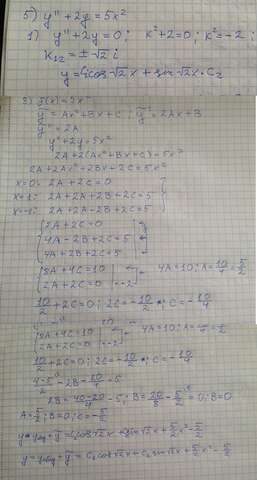 5) y'' + 2y = 5x²
1) y'' + 2y = 0; k² + 2 = 0; k² = -2;
k₁₂ = ± √2 i
y = C₁cos√2 x + sin√2 x · C₂
2) f(x) = 5x²
ỹ = Ax² + Bx + C; ỹ' = 2Ax + B
ỹ'' = 2A
y'' + 2y = 5x²
2A + 2(Ax² + Bx + C) = 5x²
2A + 2Ax² + 2Bx + 2C = 5x²
x=0: 2A + 2C = 0
x=1: 2A + 2A + 2B + 2C = 5
x=-1: 2A + 2A - 2B + 2C = 5
2A + 2C = 0
4A - 2B + 2C = 5
4A + 2B + 2C = 5
8A + 4C = 10 4A = 10; A = 10/4 = 5/2
2A + 2C = 0 | · -2
10/2 + 2C = 0; 2C = -10/2; C = -10/4
8A + 4C = 10 4A = 10; A = 10/4 = 5/2
2A + 2C = 0 | · -2
10/2 + 2C = 0; 2C = -10/2; C = -10/4
2B = 40-20/4 - 5; B = 20/8 - 5/2 = 0; B = 0
A = 5/2; B = 0; C = -5/2
y = y₀₀ + ỹ = C₁cos√2 x + C₂sin√2 x + 5/2 x² - 5/2
y = y₀₀ + ỹ = C₁cos√2 x + C₂ sin√2 x + 5/2 x² - 5/2